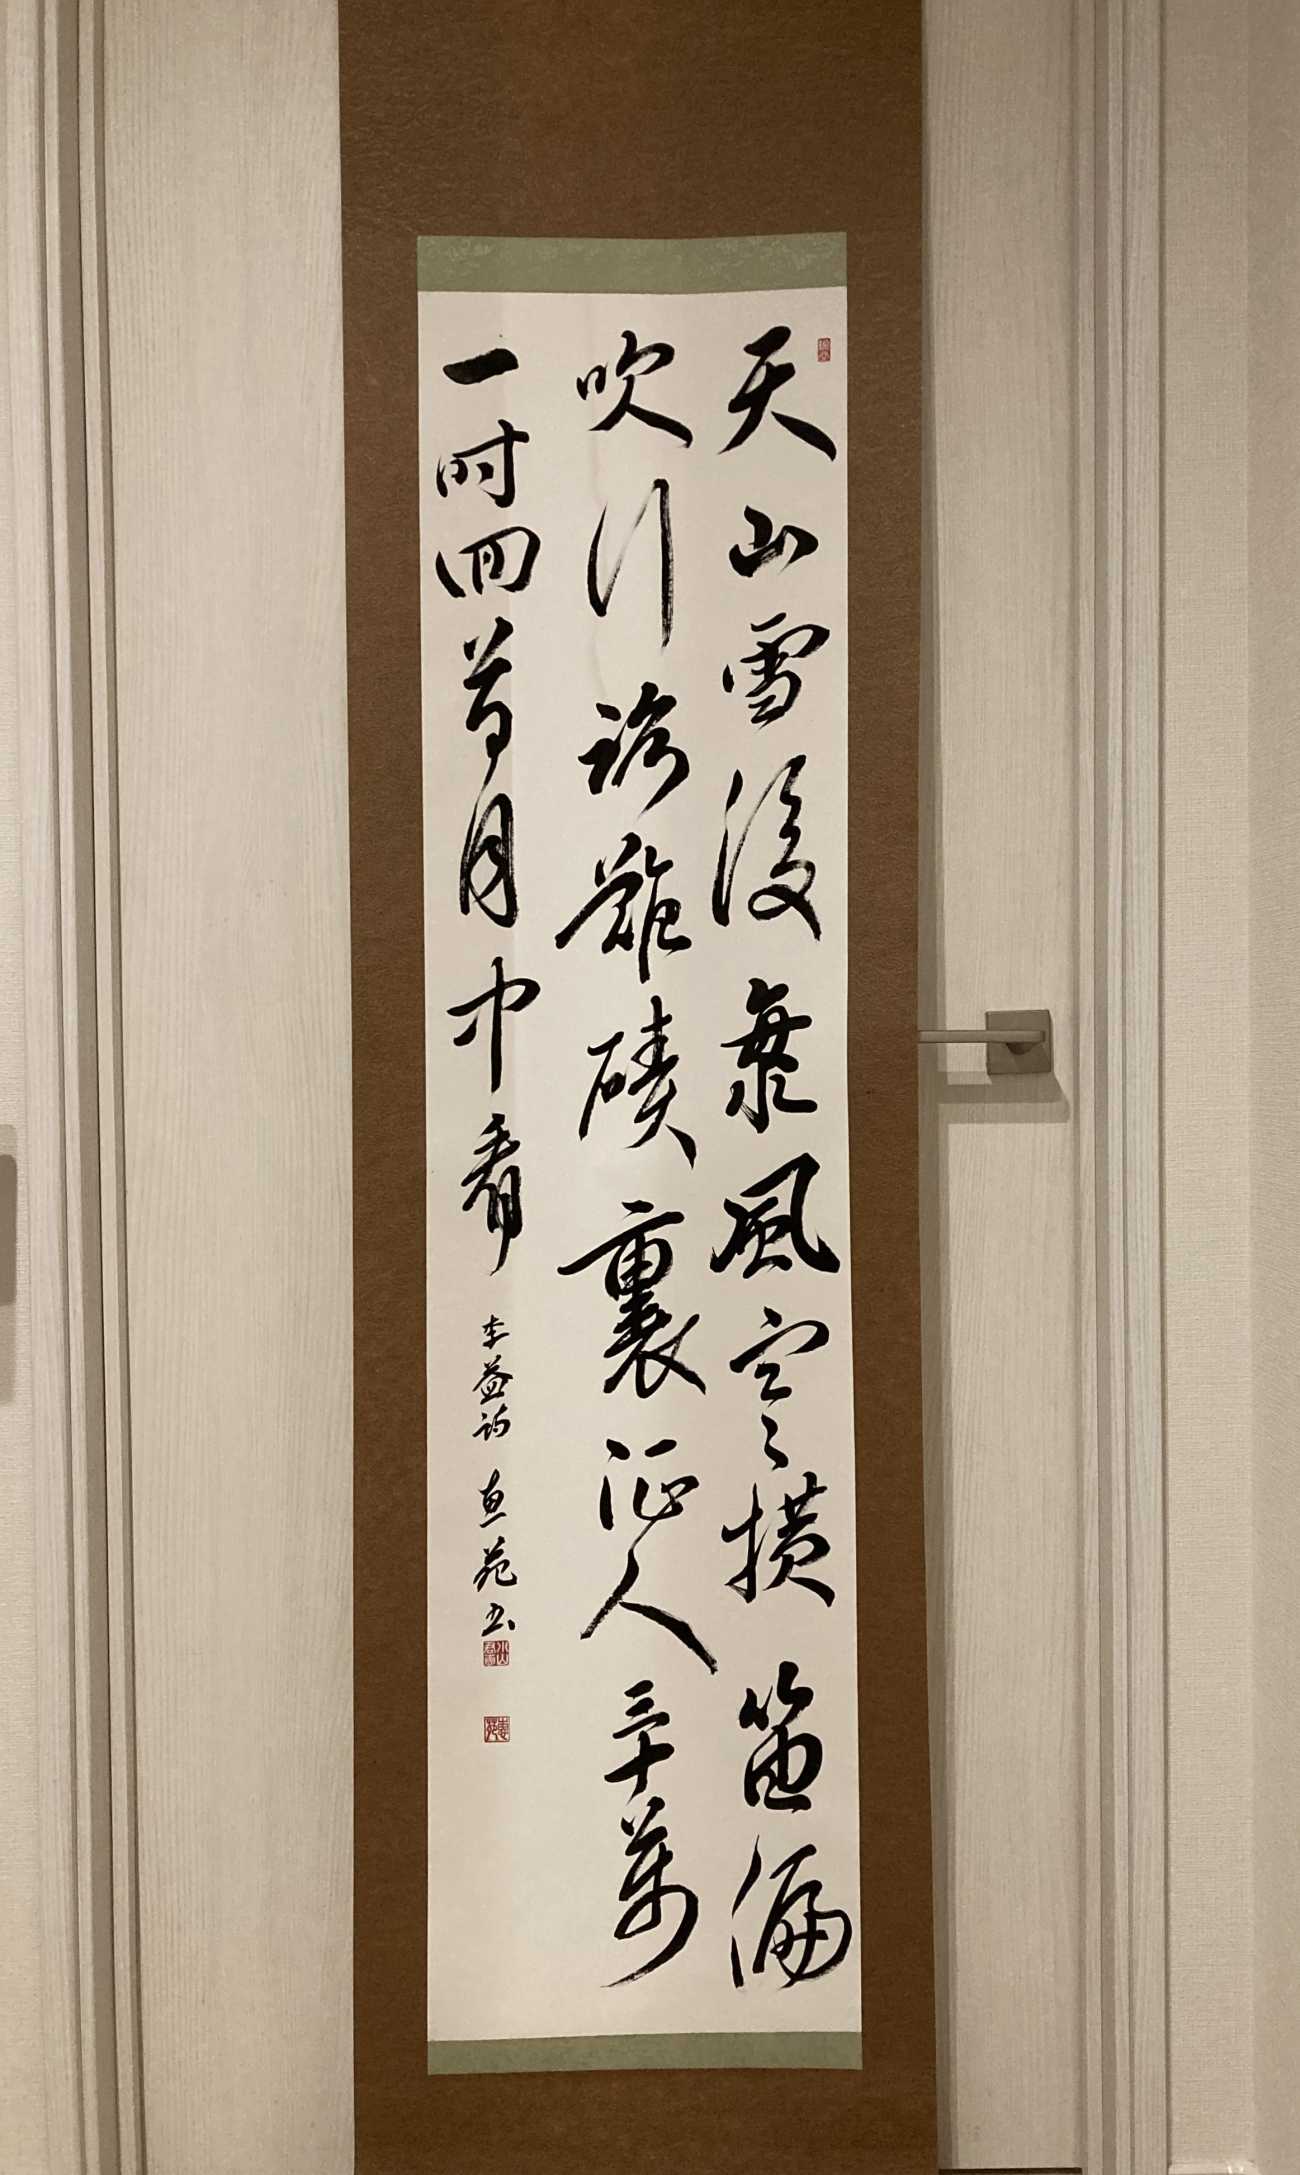 天山雪後海風寒横笛偏
吹行路難磧裏征人三十萬
一時回首月中看 李益詩 恵苑書